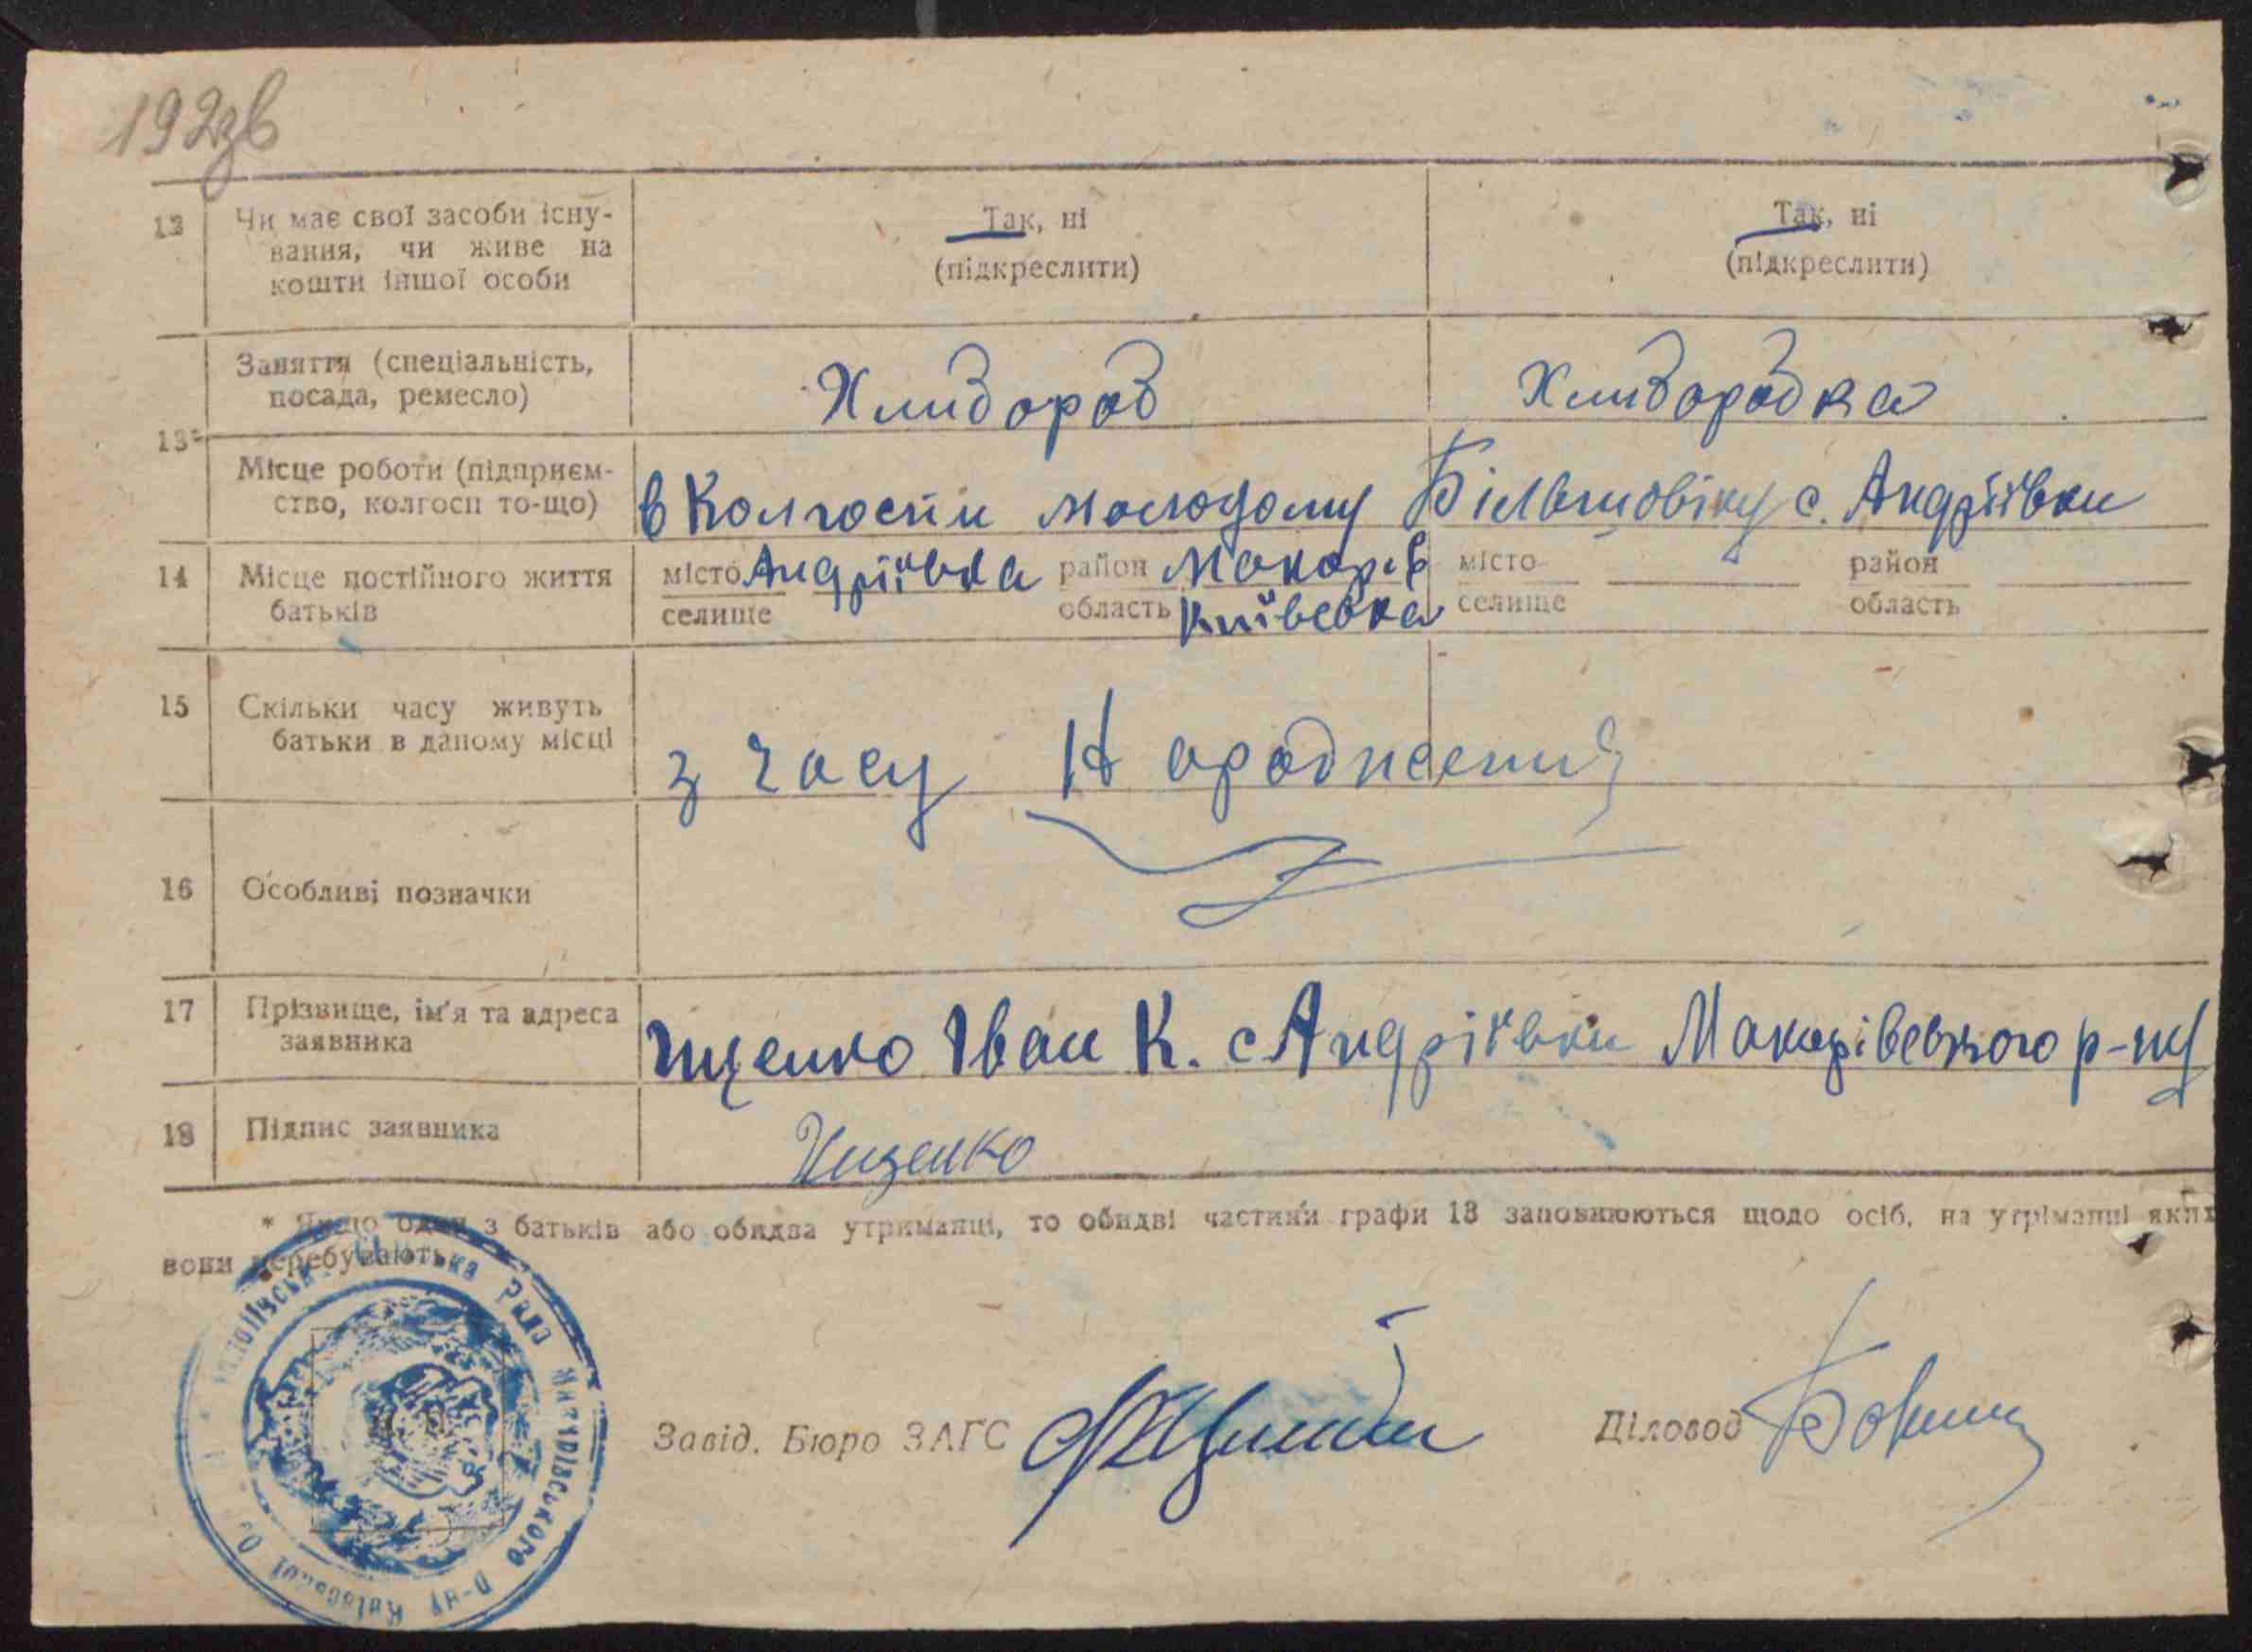 192зв
12 Чи має свої засоби існу- Так, ні Так, ні
вання, чи живе на (підкреслити) (підкреслити)
кошти іншої особи
Заняття (спеціальність, Хлибороб Хлиборобка
посада, ремесло)
13*
Місце роботи (підприєм- в Колгоспи молодому Більшовіку с. Андріївки
ство, колгосп то-що)
14 Місце постійного життя місто Андріївка район Макарів місто район
батьків селище область Київська селище область
15 Скільки часу живуть з часу Народження
батьки в даному місці
16 Особливі позначки
17 Прізвище, ім'я та адреса Іщенко Іван К. с Андріївки Макарівського р-ну
заявника
18 Підпис заявника Ищенко
* Якщо один з батьків або обидва утриманці, то обидві частини графи 13 заповнюються щодо осіб, на утріманні яких
вони перебувають
Рада Макарівського р-ну Київської
Завід. Бюро ЗАГС Діловод